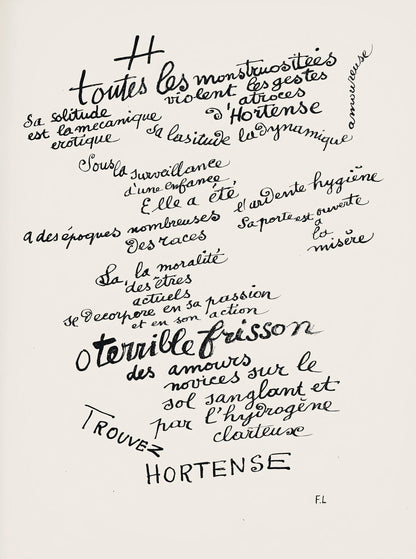 H
toutes les monstruositées
violent les gestes
atroces
d'Hortense
Sa solitude
est la mecanique
erotique
sa lasitude la dynamique
amoureuse
Sous la surveillance
d'une enfance
Elle a été,
a des époques nombreuses
l'ardente hygiène
Des races
Sa porte est ouverte
à
la
misère
Là, la moralité
des êtres
actuels
se decorpore en sa passion
et en son action
O terrible frisson
des amours
novices sur le
sol sanglant et
par l'hydrogène
clarteux
TROUVEZ
HORTENSE
F.L